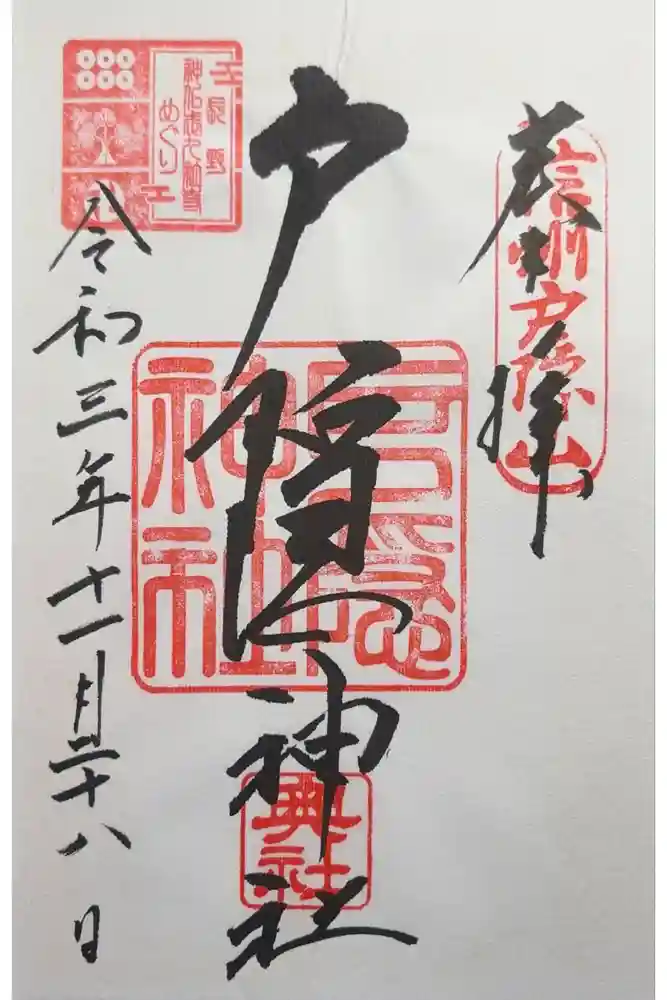 奉拝
信州戸隠山
戸隠神社
戸隠神社
奥社
長野
めぐり
令和三年十一月二十八日